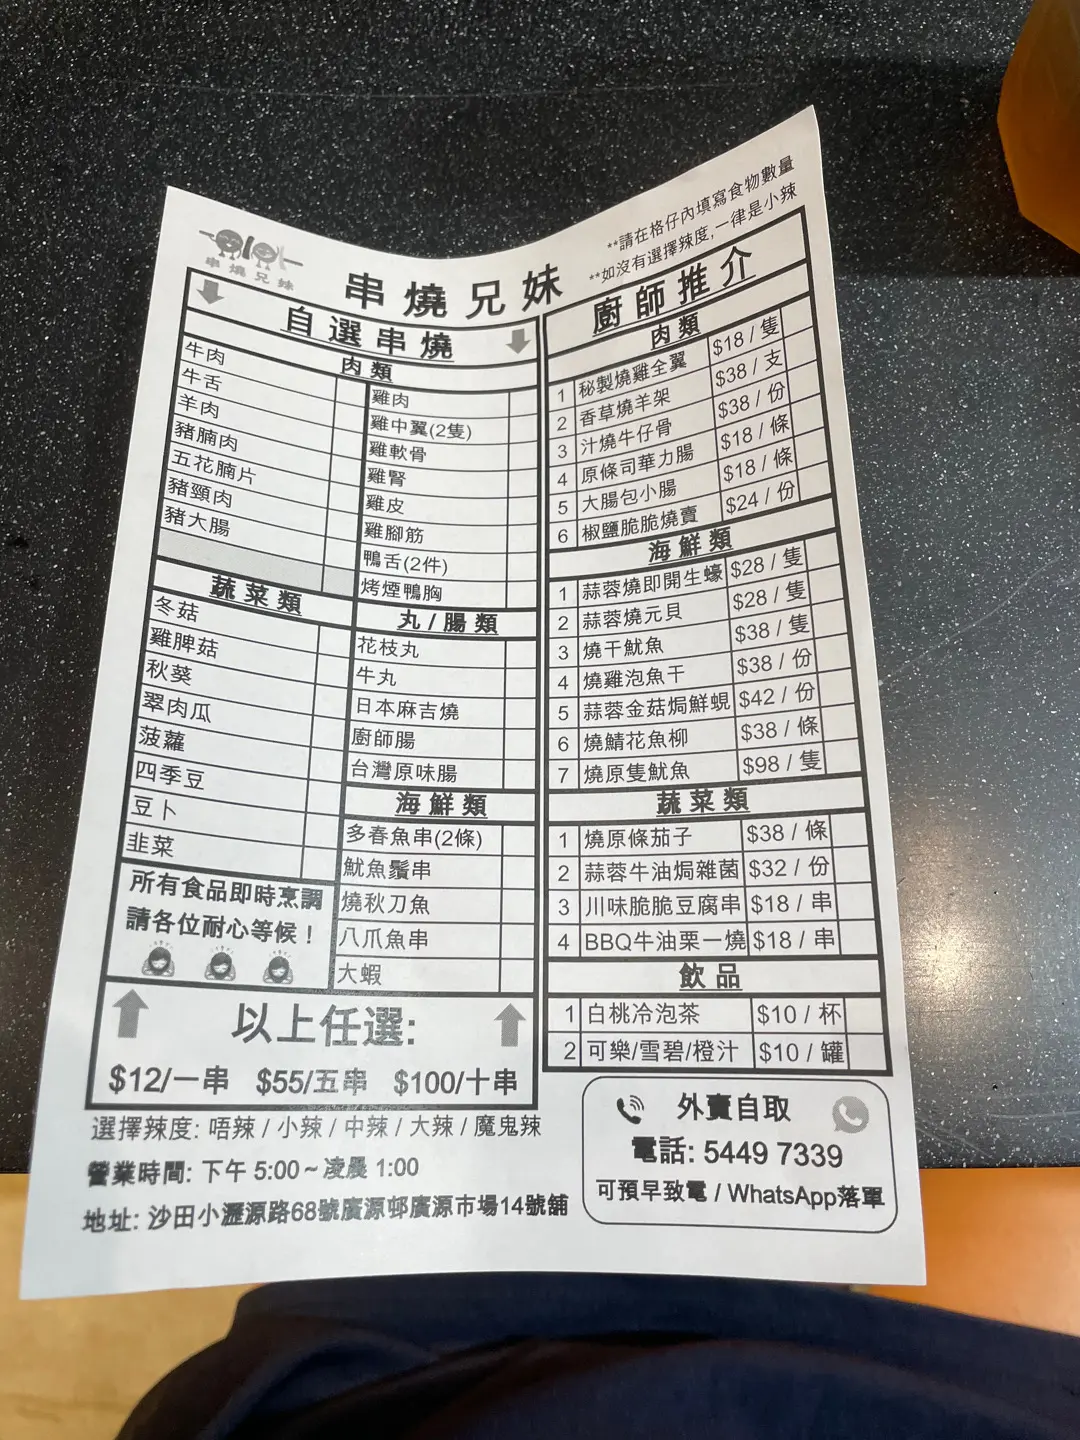 **請在格仔內填寫食物數量
**如沒有選擇辣度,一律是小辣
串燒兄妹
串燒兄妹
自選串燒
肉類
牛肉
牛舌
羊肉
豬腩肉
五花腩片
豬頸肉
豬大腸
雞肉
雞中翼(2隻)
雞軟骨
雞腎
雞皮
雞腳筋
鴨舌(2件)
烤煙鴨胸
蔬菜類
冬菇
雞脾菇
秋葵
翠肉瓜
菠蘿
四季豆
豆卜
韭菜
丸/腸類
花枝丸
牛丸
日本麻吉燒
廚師腸
台灣原味腸
海鮮類
多春魚串(2條)
魷魚鬚串
燒秋刀魚
八爪魚串
大蝦
所有食品即時烹調
請各位耐心等候！
以上任選:
$12/一串 $55/五串 $100/十串
廚師推介
肉類
1 秘製燒雞全翼 $18 / 隻
2 香草燒羊架 $38 / 支
3 汁燒牛仔骨 $38 / 份
4 原條司華力腸 $18 / 條
5 大腸包小腸 $18 / 條
6 椒鹽脆脆燒賣 $24 / 份
海鮮類
1 蒜蓉燒即開生蠔 $28 / 隻
2 蒜蓉燒元貝 $28 / 隻
3 燒干魷魚 $38 / 隻
4 燒雞泡魚干 $38 / 份
5 蒜蓉金菇焗鮮蜆 $42 / 份
6 燒鯖花魚柳 $38 / 條
7 燒原隻魷魚 $98 / 隻
蔬菜類
1 燒原條茄子 $38 / 條
2 蒜蓉牛油焗雜菌 $32 / 份
3 川味脆脆豆腐串 $18 / 串
4 BBQ牛油栗一燒 $18 / 串
飲品
1 白桃冷泡茶 $10 / 杯
2 可樂/雪碧/橙汁 $10 / 罐
選擇辣度: 唔辣 / 小辣 / 中辣 / 大辣 / 魔鬼辣
營業時間: 下午 5:00～凌晨 1:00
地址: 沙田小瀝源路68號廣源邨廣源市場14號舖
外賣自取
電話: 5449 7339
可預早致電 / WhatsApp落單